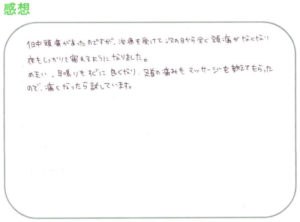 感想
1日中頭痛があったのですが、治療を受けて次の日から全く頭痛がなくなり
夜もしっかりと寝えるようになりました。
めまい、耳鳴りもすぐに良くなり、肩の痛みもマッサージを教えてもらった
ので、痛くなったら試しています。